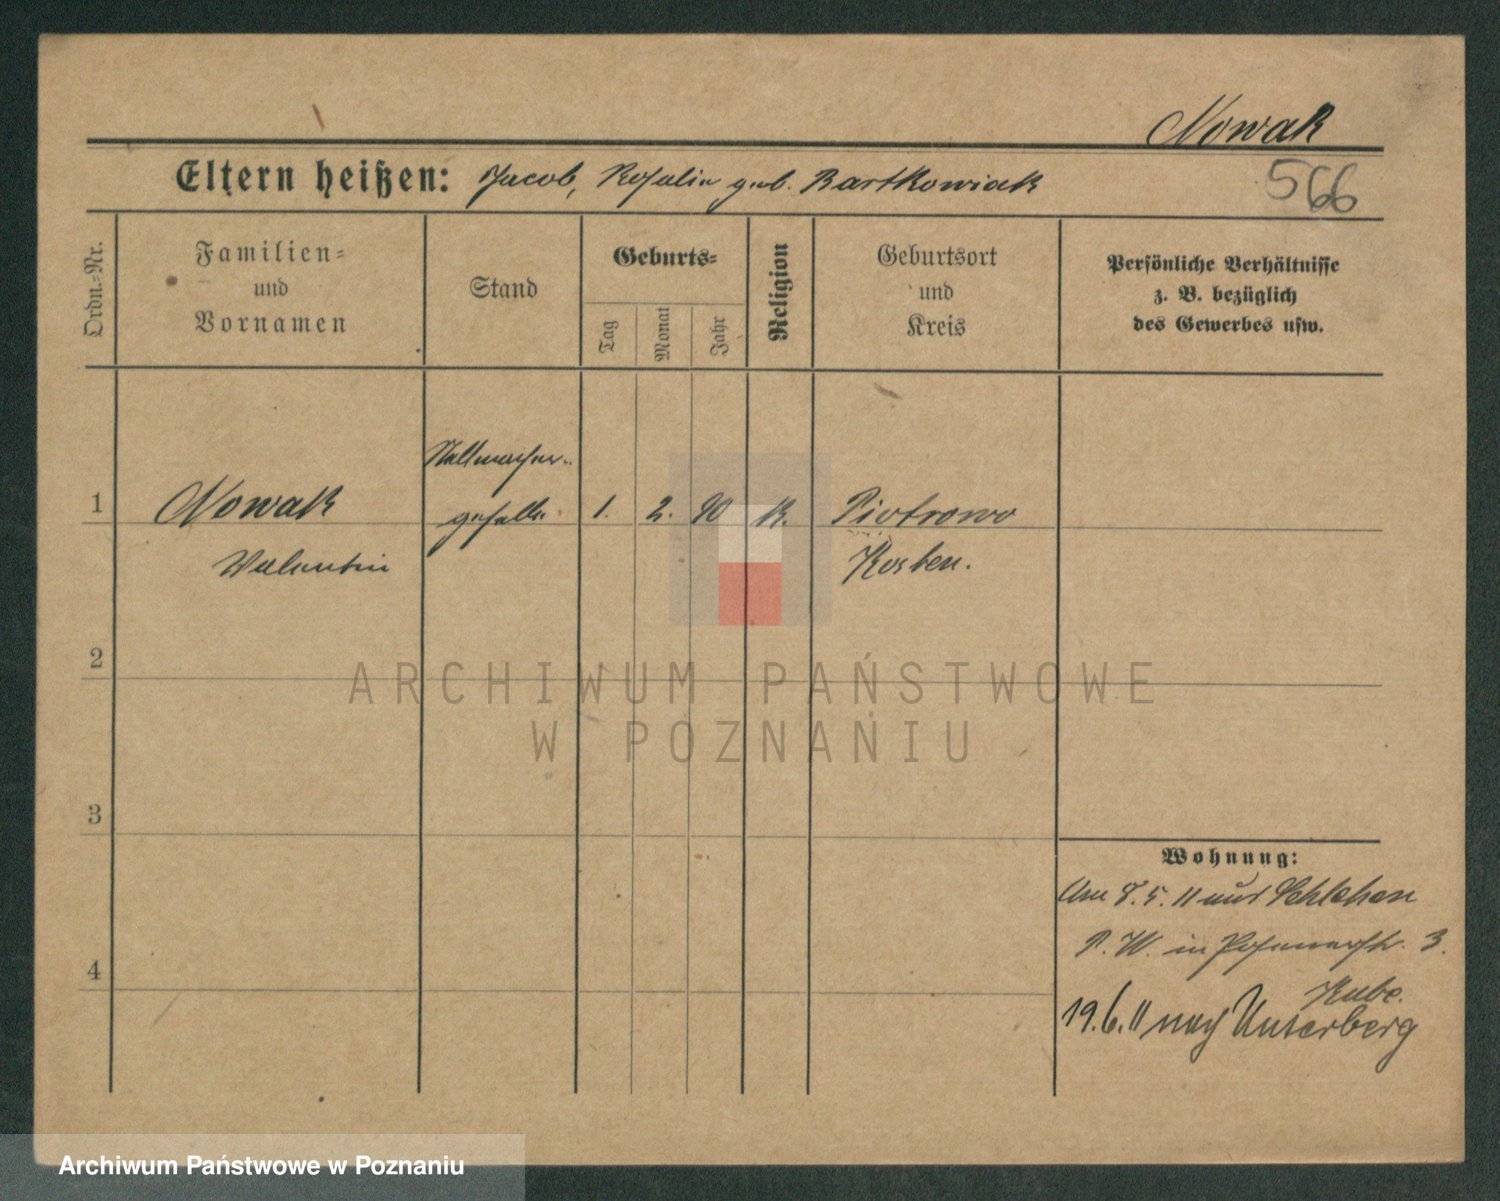 Nowak
Eltern heißen: Jacob, Rosalie geb. Bartkowiak
566
Ordn.-Nr.
Familien=
und
Vornamen
Stand
Geburts=
Tag
Monat
Jahr
Religion
Geburtsort
und
Kreis
Persönliche Verhältnisse
z. B. bezüglich
des Gewerbes usw.
1
Nowak
Valentin
Stellmacher-
geselle
1.
2.
90
K.
Piotrowo
Kosten.
2
3
4
Wohnung:
Am 8.5.11 aus Schlehen
P. W. in Posenerstr. 3.
Kube.
19.6.11 nach Unterberg
ARCHIWUM PAŃSTWOWE
W POZNANIU
Archiwum Państwowe w Poznaniu